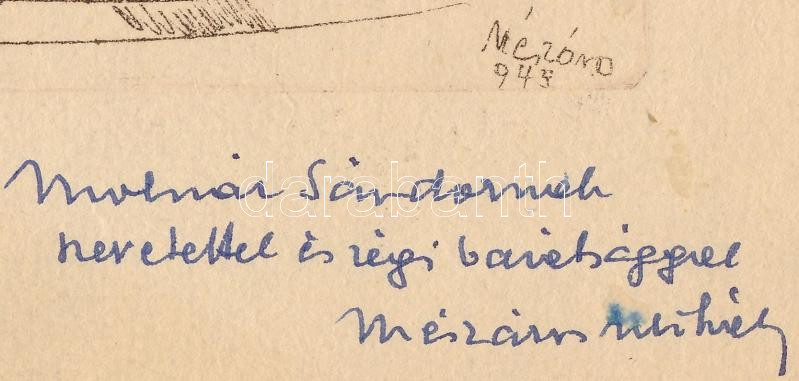 Mészáros
945
Molnár Sándornak
szeretettel és régi barátsággal
Mészáros Mihály
darabanth